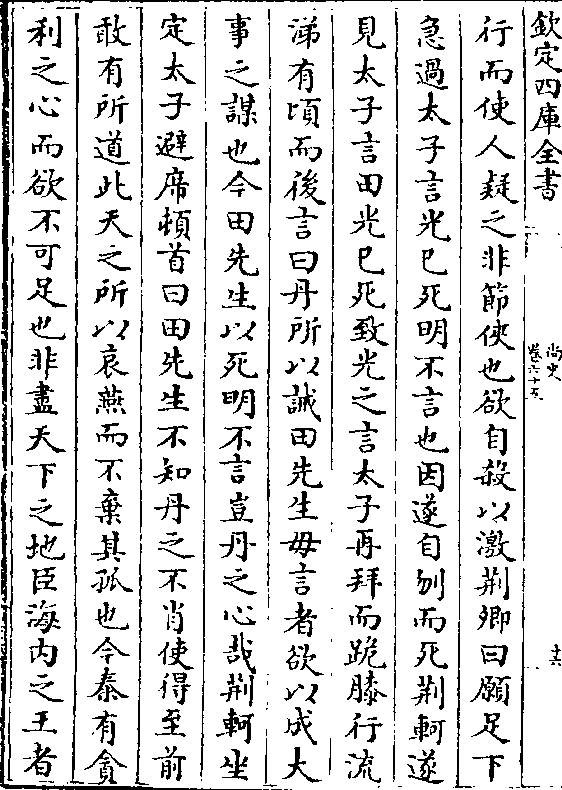 欽定四庫全書
尚史
卷六十五
十六
行而使人疑之非節俠也欲自殺以激荆卿曰願足下
急過太子言光已死明不言也因遂自刎而死荆軻遂
見太子言田光已死致光之言太子再拜而跪膝行流
涕有頃而後言曰丹所以誡田先生毋言者欲以成大
事之謀也今田先生以死明不言豈丹之心哉荆軻坐
定太子避席頓首曰田先生不知丹之不肖使得至前
敢有所道此天之所以哀燕而不棄其孤也今秦有貪
利之心而欲不可足也非盡天下之地臣海内之王者